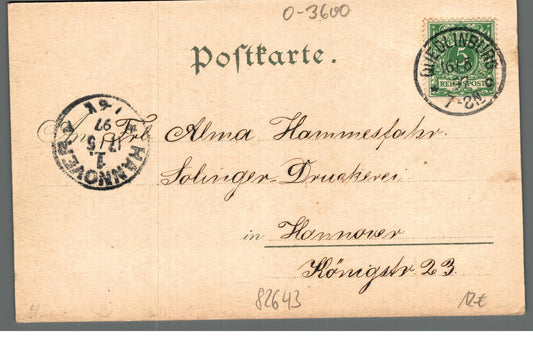 0-3600
Postkarte.
5
REICHSPOST
QUEDLINBURG
97
7-8N
97
17/5
1.
HANNOVER
An Frl. Alma Hammesfahr.
Solinger-Druckerei
in Hannover
Königstr 23
82643
12€